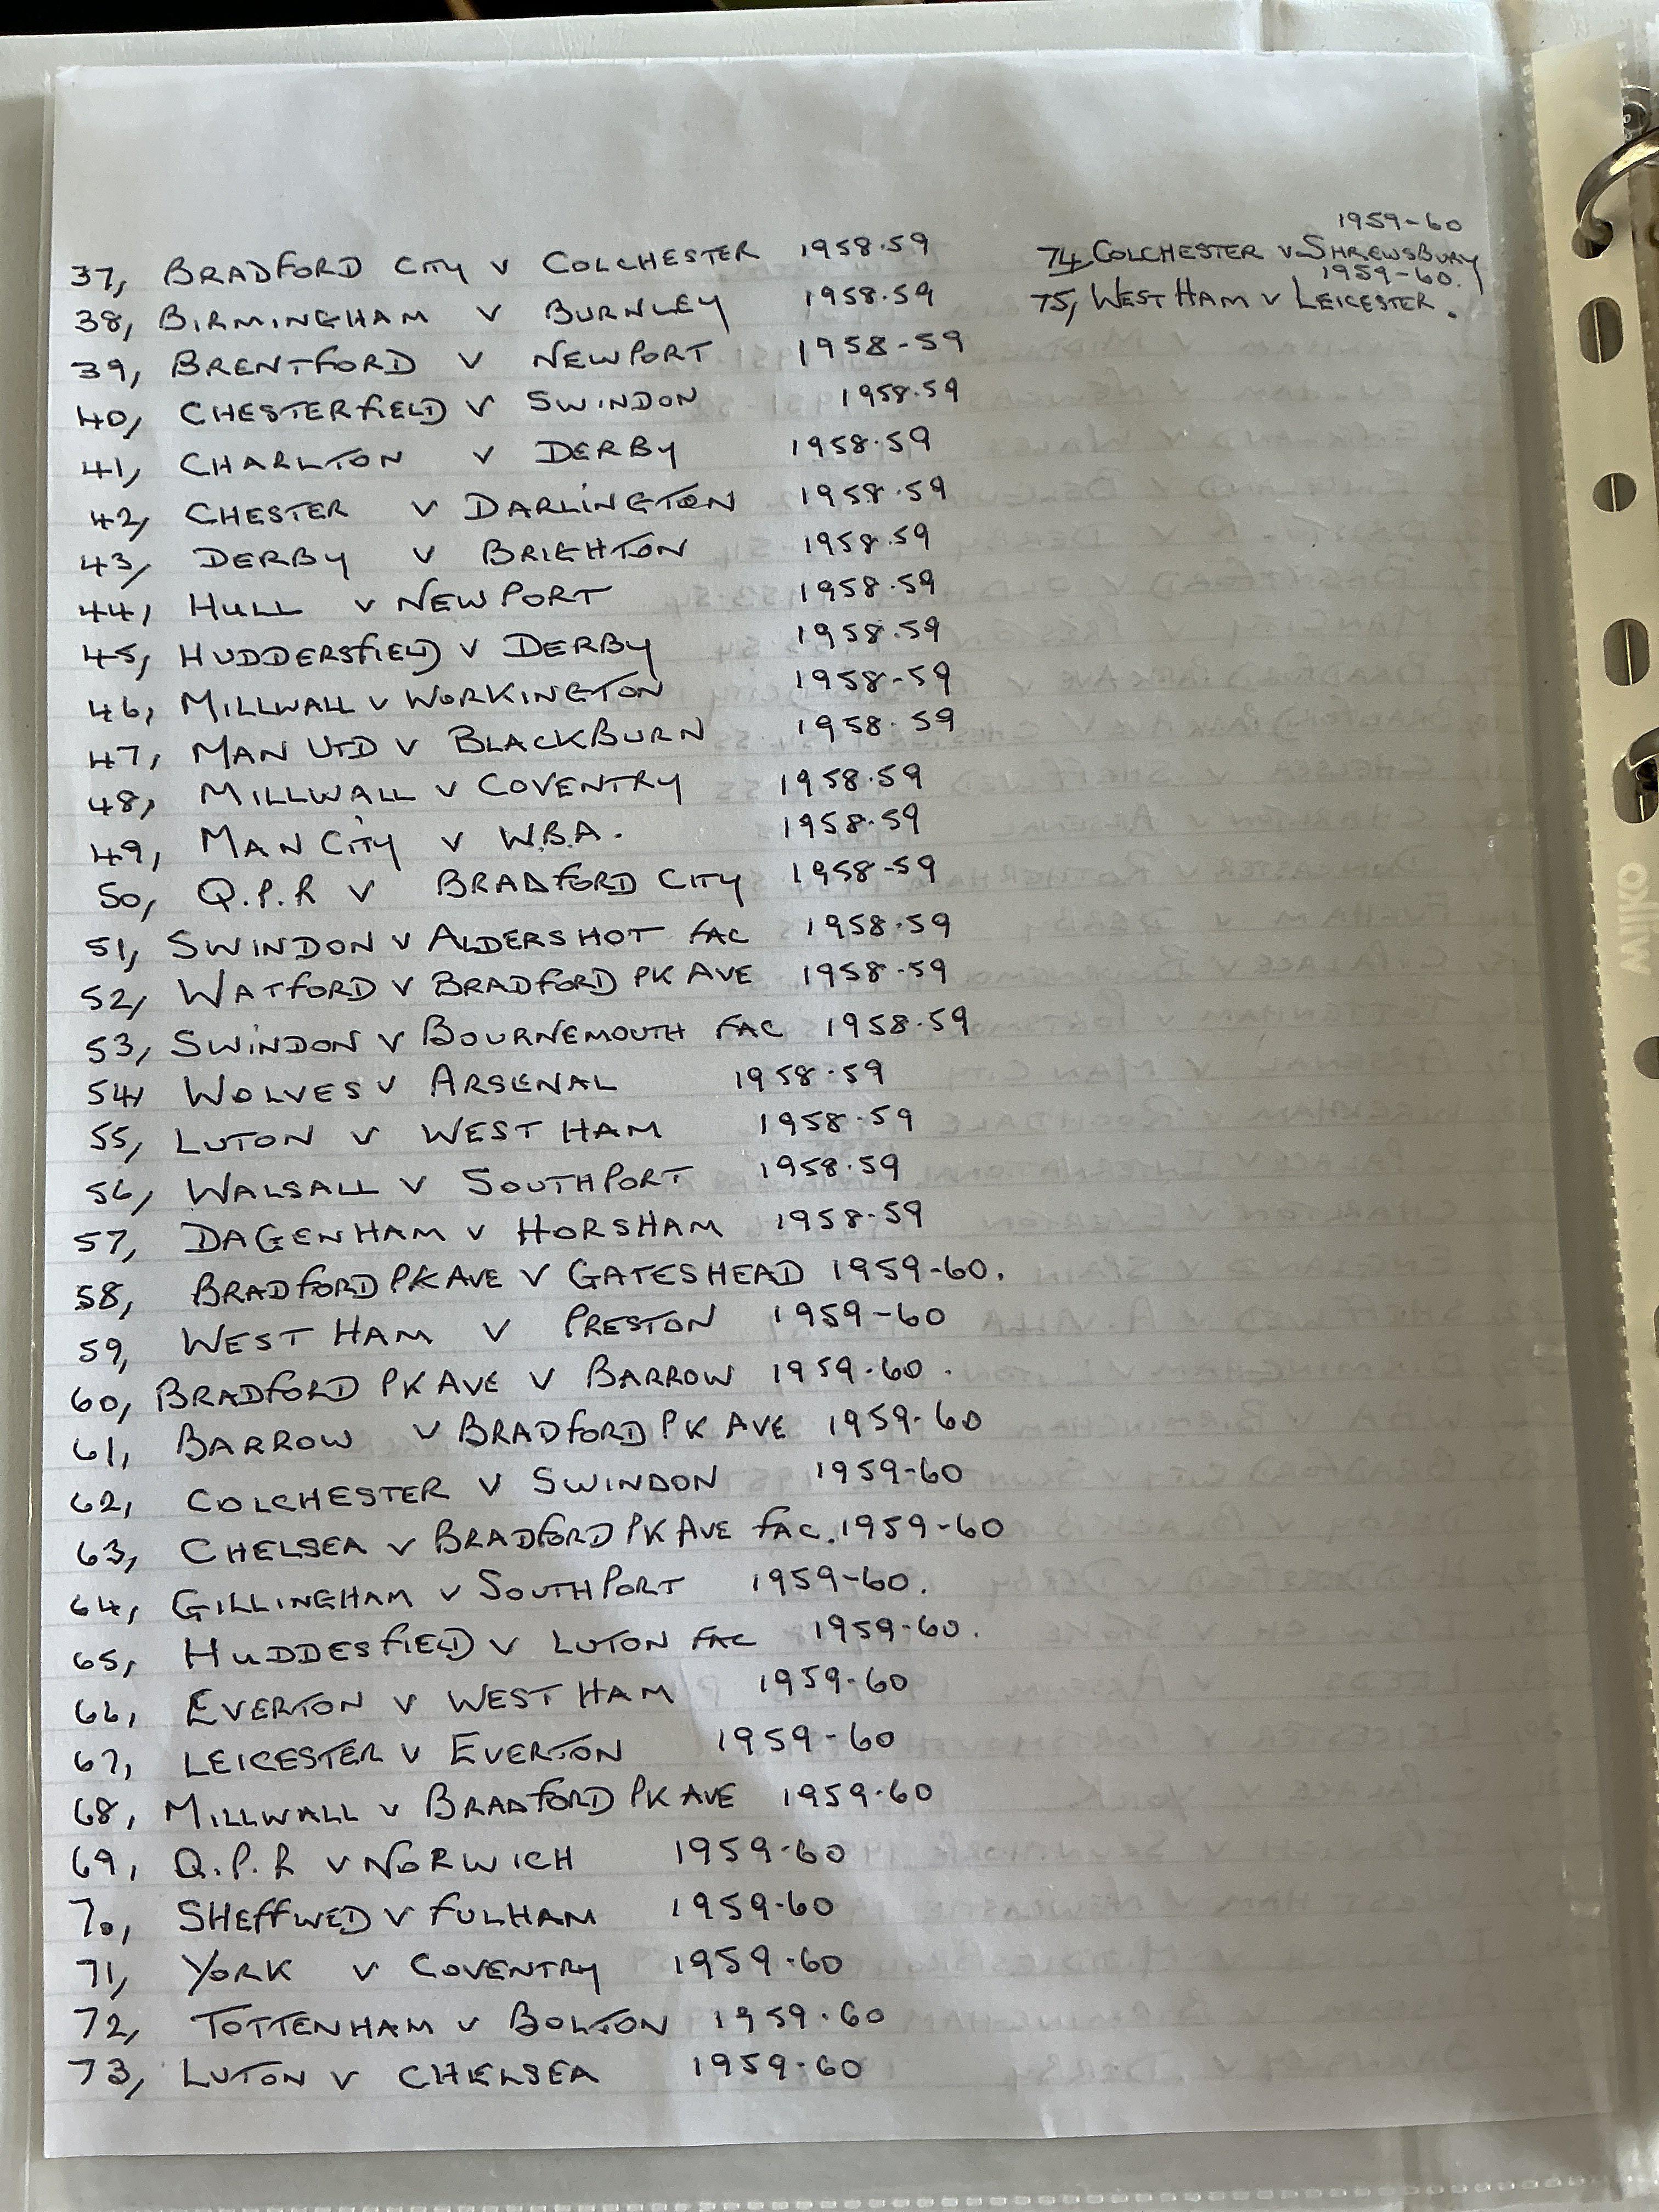 37, BRADFORD CITY V COLCHESTER 1958.59
38, BIRMINGHAM V BURNLEY 1958.59
39, BRENTFORD V NEWPORT 1958-59
40, CHESTERFIELD V SWINDON 1958.59
41, CHARLTON V DERBY 1958.59
42, CHESTER V DARLINGTON 1958.59
43, DERBY V BRIGHTON 1958.59
44, HULL V NEWPORT 1958.59
45, HUDDERSFIELD V DERBY 1958.59
46, MILLWALL V WORKINGTON 1958-59
47, MAN UTD V BLACKBURN 1958.59
48, MILLWALL V COVENTRY 1958.59
49, MAN CITY V W.B.A. 1958.59
50, Q.P.R V BRADFORD CITY 1958-59
51, SWINDON V ALDERSHOT FAC 1958.59
52, WATFORD V BRADFORD PK AVE 1958-59
53, SWINDON V BOURNEMOUTH FAC 1958.59
54, WOLVES V ARSENAL 1958.59
55, LUTON V WEST HAM 1958.59
56, WALSALL V SOUTHPORT 1958.59
57, DAGENHAM V HORSHAM 1958-59
58, BRADFORD PK AVE V GATESHEAD 1959-60.
59, WEST HAM V PRESTON 1959-60
60, BRADFORD PK AVE V BARROW 1959.60.
61, BARROW V BRADFORD PK AVE 1959-60
62, COLCHESTER V SWINDON 1959-60
63, CHELSEA V BRADFORD PK AVE FAC. 1959-60
64, GILLINGHAM V SOUTHPORT 1959-60.
65, HUDDESFIELD V LUTON FAC 1959-60.
66, EVERTON V WEST HAM 1959-60
67, LEICESTER V EVERTON 1959-60
68, MILLWALL V BRADFORD PK AVE 1959.60
69, Q.P.R V NORWICH 1959-60
70, SHEFFWED V FULHAM 1959-60
71, YORK V COVENTRY 1959-60
72, TOTTENHAM V BOLTON 1959.60
73, LUTON V CHELSEA 1959-60
1959-60
74, COLCHESTER V SHREWSBURY
1959-60.
75, WEST HAM V LEICESTER.
wiko